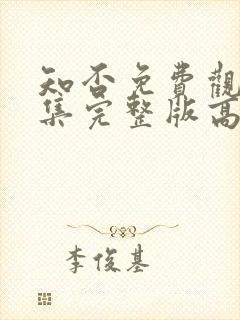 知否免費觀
集完整版高
李俊基